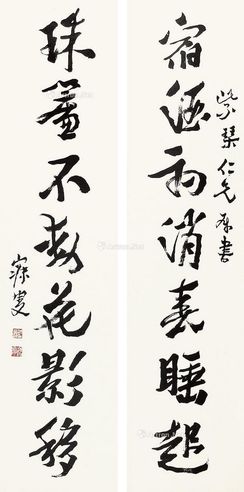 紫琹仁兄屬書
宿酒初消春睡起
珠簾不動花影移
寐叟